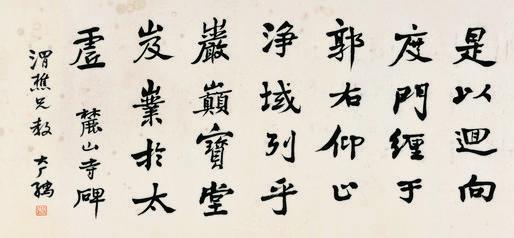 是以迴向
度門纏于
郭右仰止
淨域列乎
巖巔寶堂
岌嶪於太
虛 麓山寺碑
渭樵兄教 大厂孺